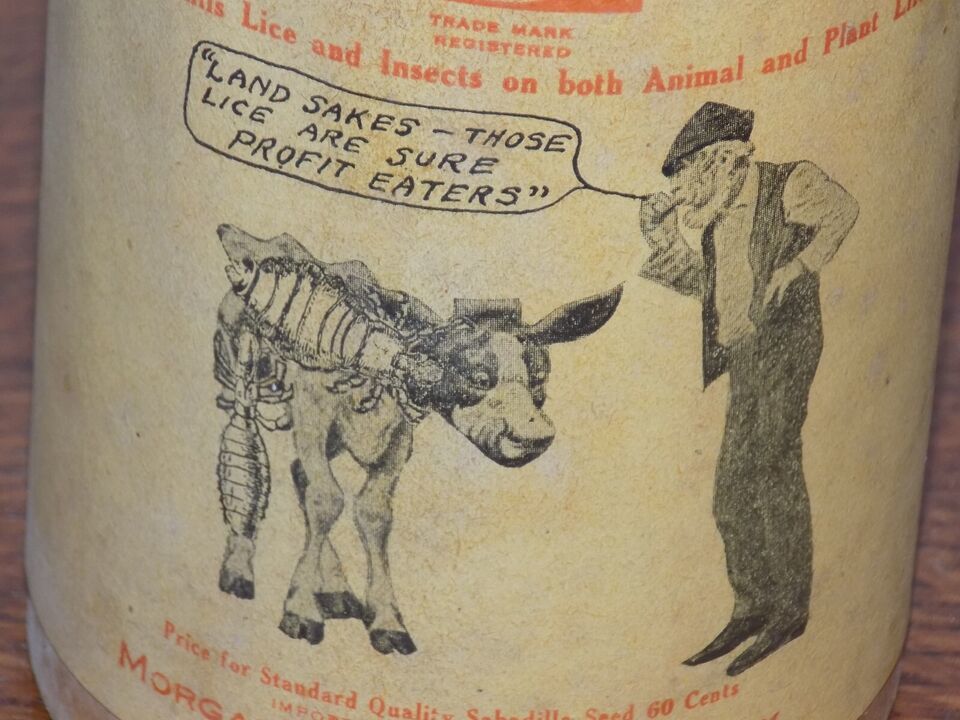 TRADE MARK
REGISTERED
Lice and Insects on both Animal and Plant
"LAND SAKES - THOSE
LICE ARE SURE
PROFIT EATERS"
Price for Standard Quality Sabadilla Seed 60 Cents